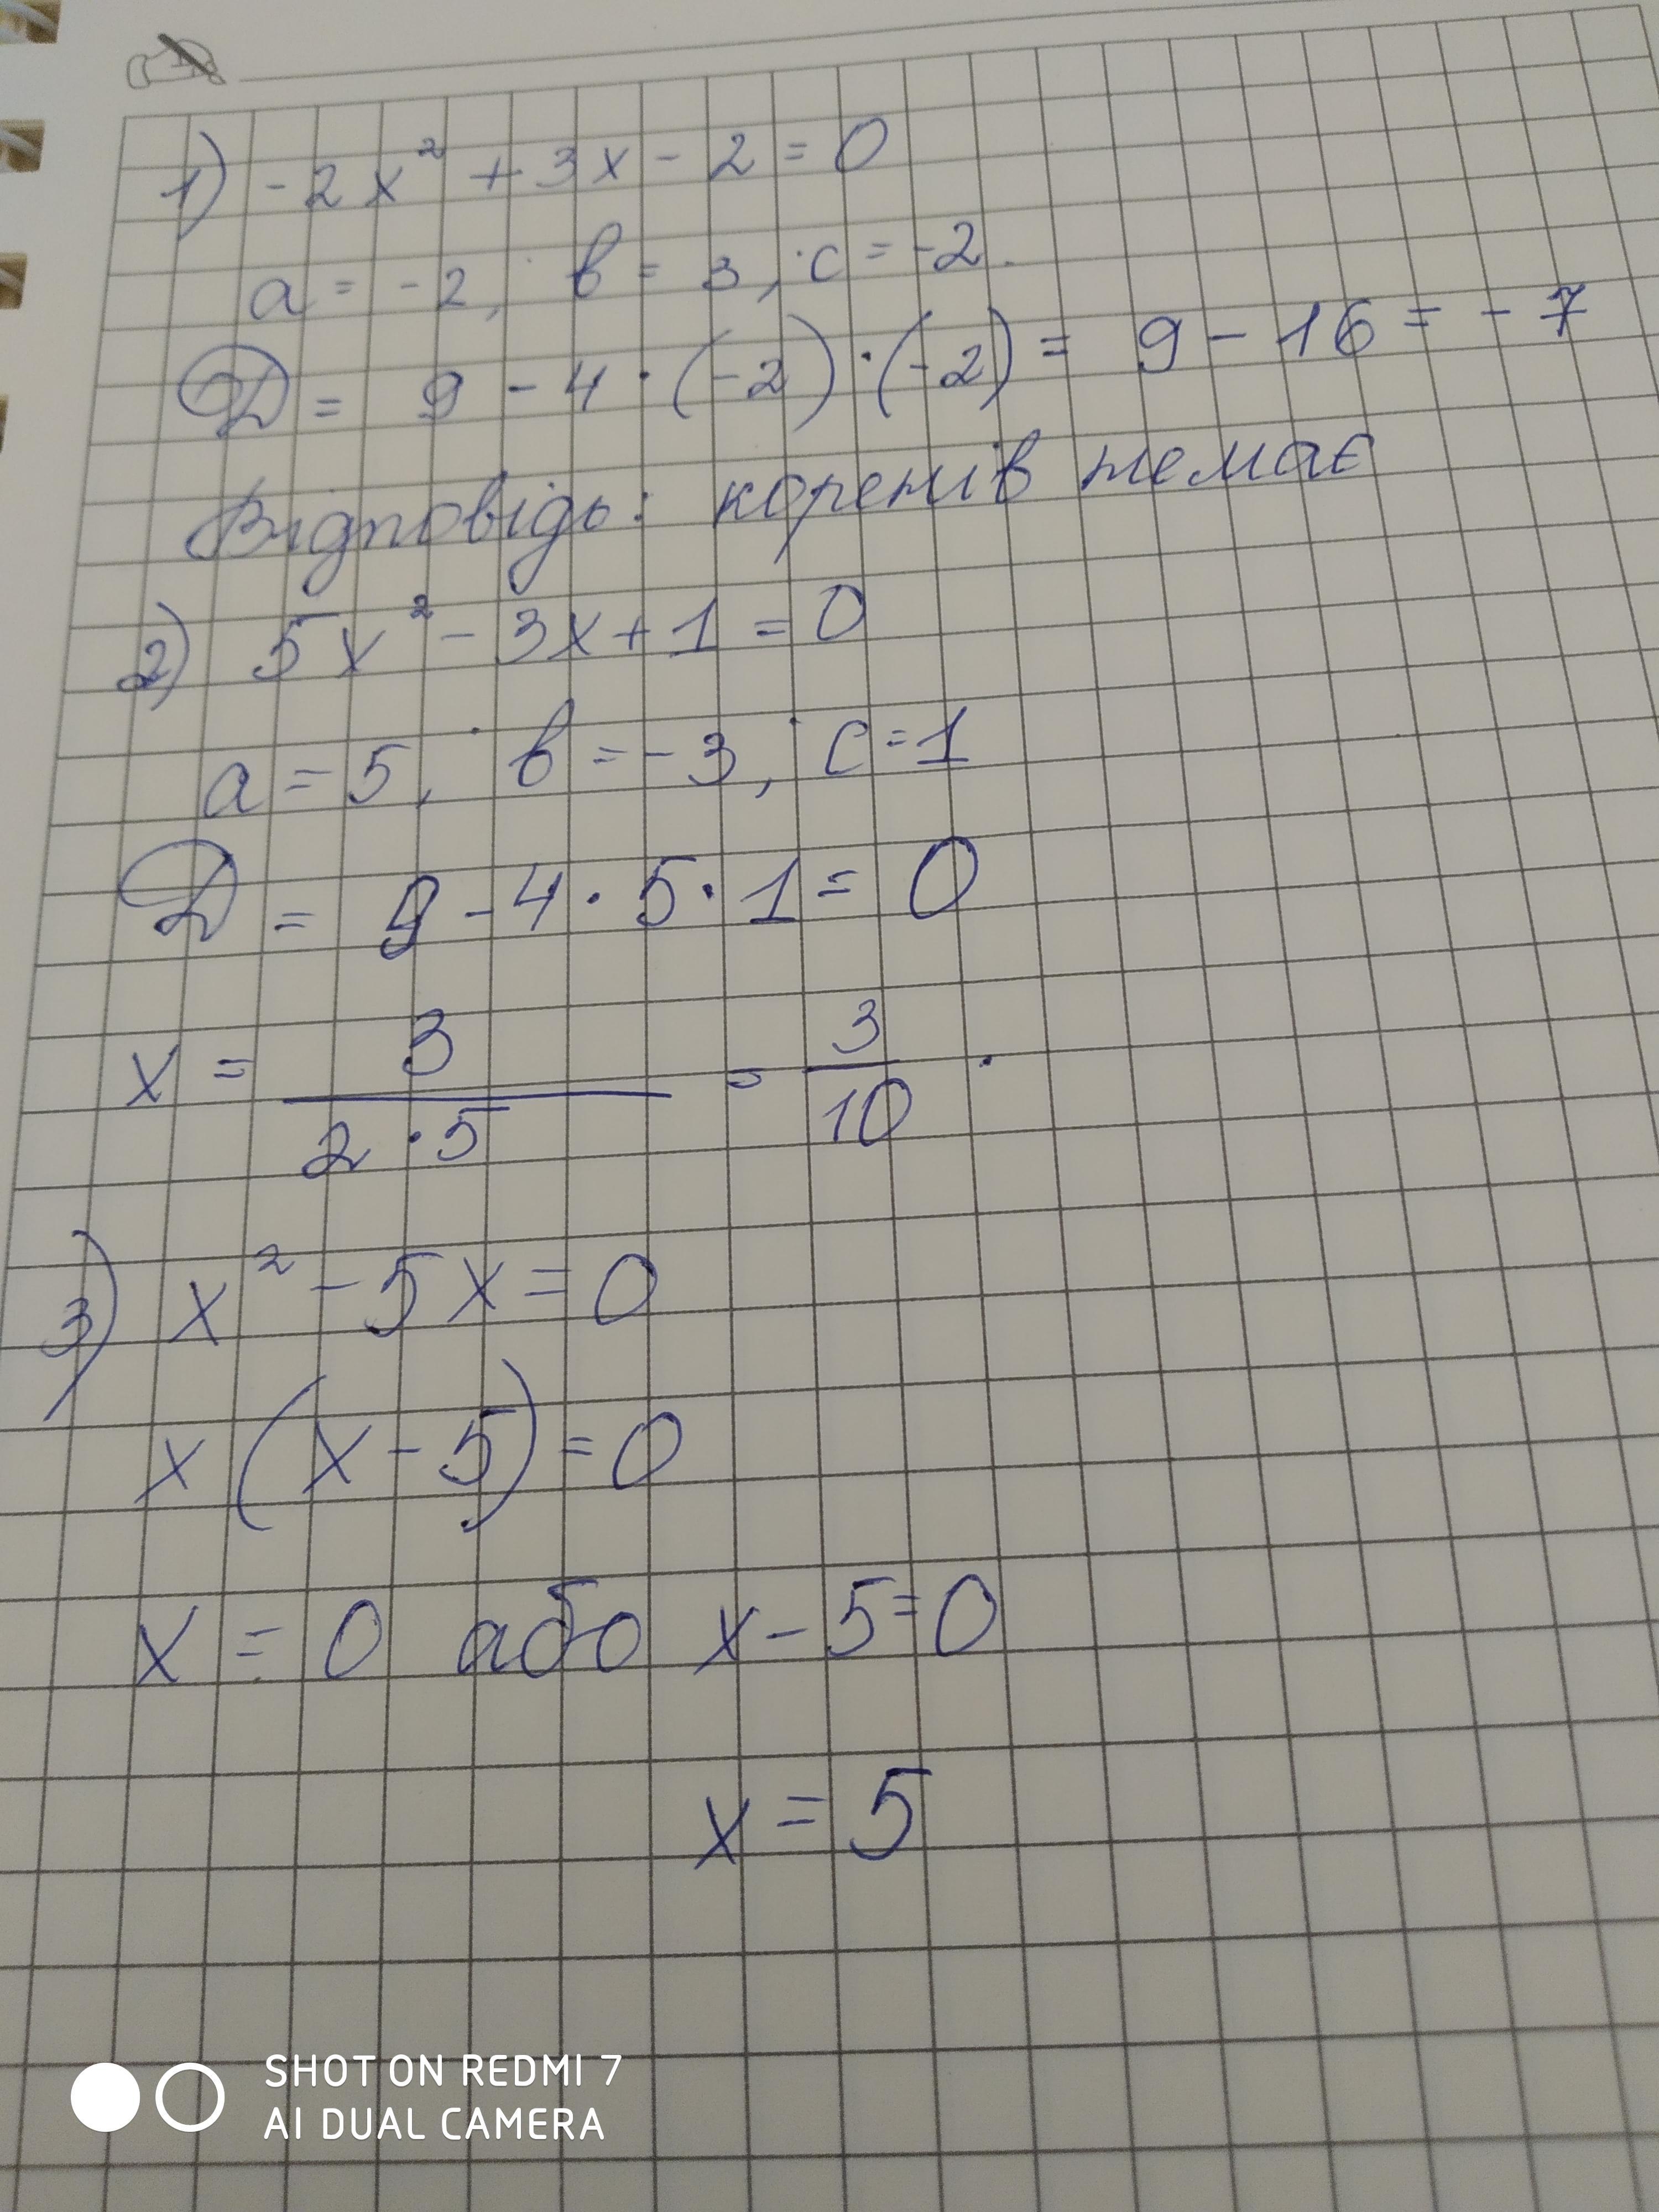 1) -2x² + 3x - 2 = 0
a = -2, b = 3, c = -2.
D = 9 - 4 · (-2) · (-2) = 9 - 16 = -7
Відповідь: коренів немає
2) 5x² - 3x + 1 = 0
a = 5, b = -3, c = 1
D = 9 - 4 · 5 · 1 = 0
x = 3 / 2 · 5 = 3 / 10 .
3) x² - 5x = 0
x (x - 5) = 0
x = 0 або x - 5 = 0
x = 5
SHOT ON REDMI 7
AI DUAL CAMERA